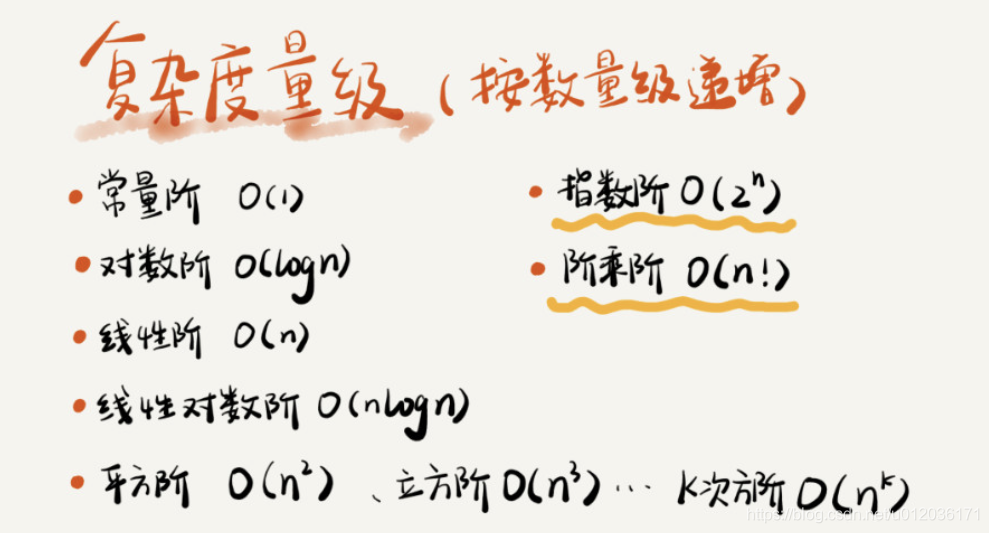 复杂度量级（按数量级递增）
常量阶 O(1)
对数阶 O(logn)
线性阶 O(n)
线性对数阶 O(nlogn)
平方阶 O(n²)、立方阶 O(n³) … K次方阶 O(nᵏ)
指数阶 O(2ⁿ)
阶乘阶 O(n!)
https://blog.csdn.net/u012036171